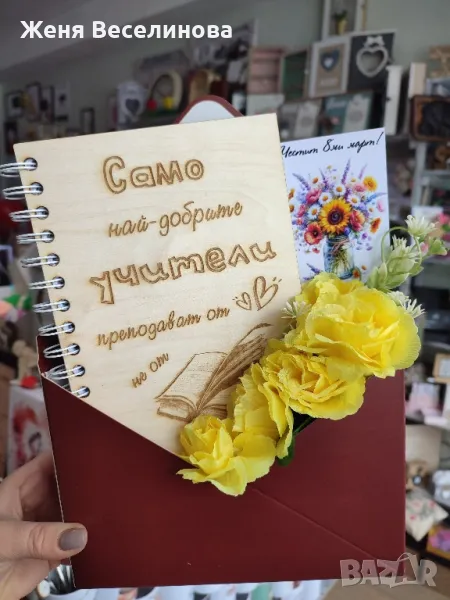 Женя Веселинова
Честит 8ми март!
Само
най-добрите
учители
преподават от
не от
BAZAR